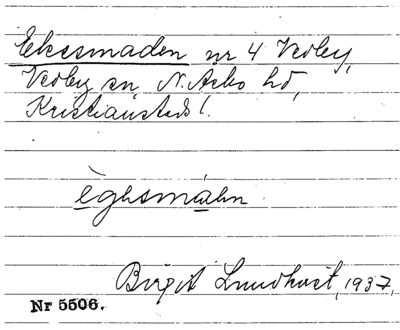 Ekesmaden nr 4 Vedby,
Vedby sn, N. Åsbo hd,
Kristianstads l.
èghsmáhn
Birgit Lundkvist, 1937,
Nr 5506.